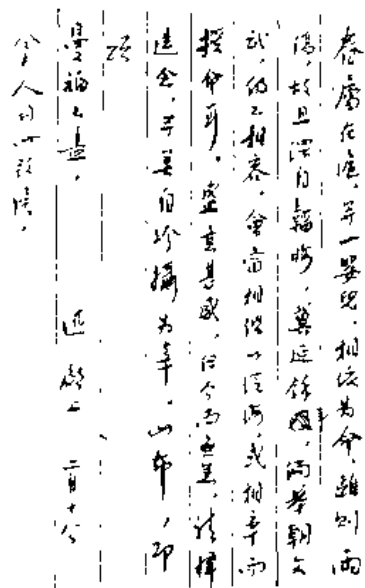 眷屬在滬，并一嬰兒，相依為命，離則兩
傷，故且深自韜晦，冀延餘年，倘舉朝文
武，仍不相容，會當相偕以泛海，或相率而
授命耳。盛意甚感，但今尚無恙，請釋
遠念，并善自珍攝為幸。此布，即
頌
曼福不盡。 迅 啟上 二月十八日
令夫人均此致候。